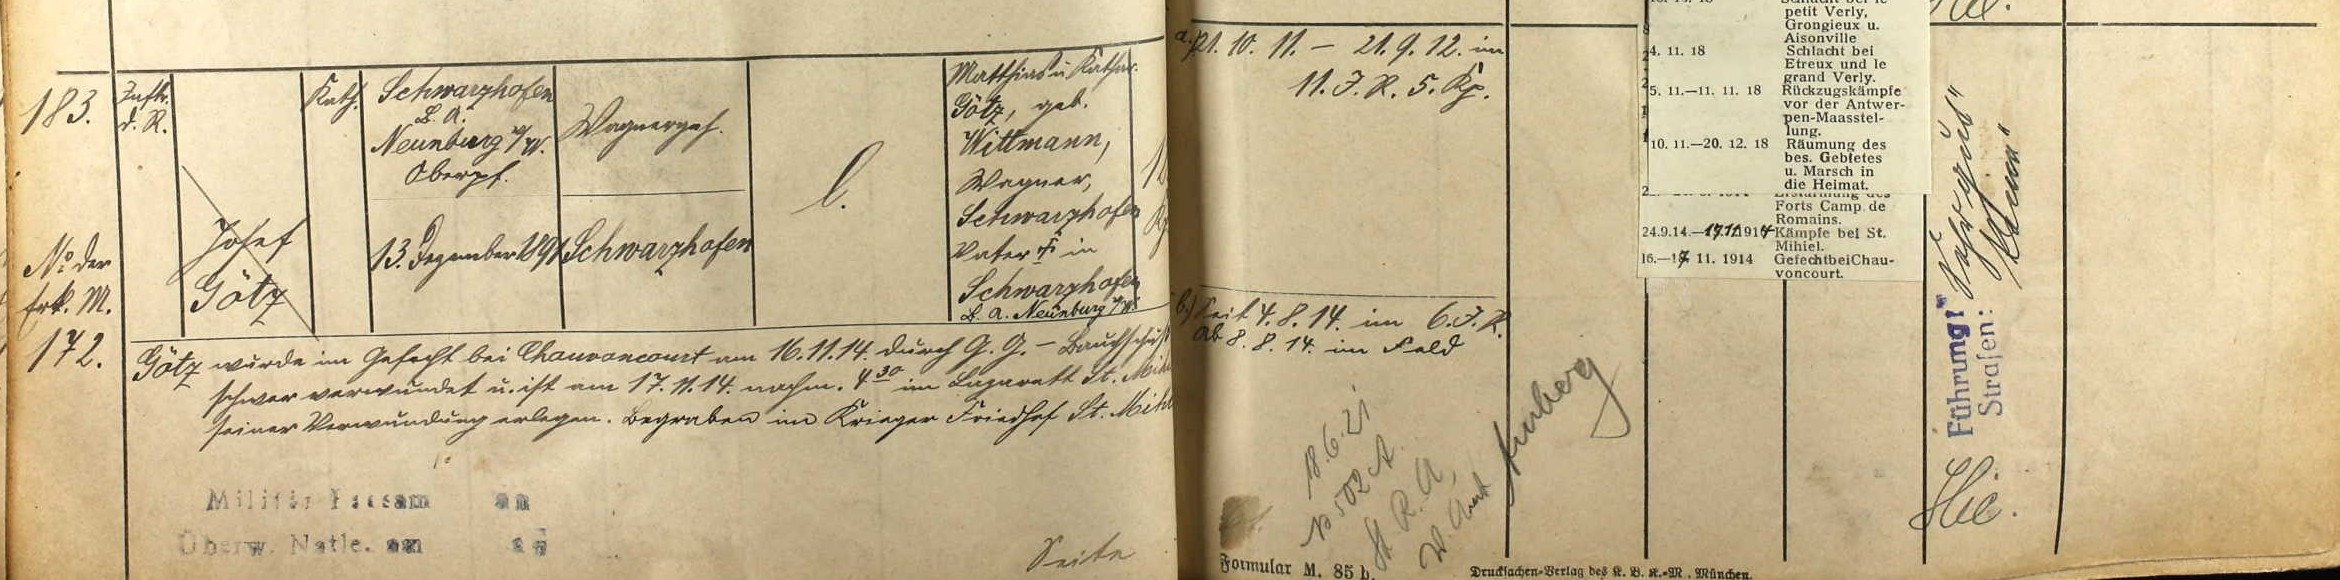 183.
No der
Erk. M.
172.
Inftr.
d. R.
Josef
Götz
Kath.
Schwarzhofen
B. A.
Neunburg v/W.
Oberpf.
13. Dezember 1891
Wagnerges.
Schwarzhofen
l.
Matthias u. Kathar.
Götz, geb.
Wittmann,
Wagner,
Schwarzhofen
Vater † in
Schwarzhofen
B. A. Neunburg v/W.
Götz wurde im Gefecht bei Chauvoncourt am 16.11.14. durch G. G. – Bauchschuß
schwer verwundet u. ist am 17.11.14. nachm. 4 30 im Lazarett St. Mih
seiner Verwundung erlegen. Begraben im Krieger Friedhof St. Mih
Militär Passam an
Überw. Natle. am
Seite
a.) 21. 10. 11. – 21. 9. 12. im
11. J. R. 5. Kp.
b.) Seit 4. 8. 14. im 6. J. R.
Ab 8. 8. 14. im Feld
18.6.21
No 502 A.
St. R. A.
Amberg
Formular M. 85 b.
Drucksachen-Verlag des K. B. K.-M. München.
petit Verly,
Grongieux u.
Aisonville
4. 11. 18 Schlacht bei
Etreux und le
grand Verly.
5. 11.—11. 11. 18 Rückzugskämpfe
vor der Antwer-
pen-Maasstel-
lung.
10. 11.—20. 12. 18 Räumung des
bes. Gebietes
u. Marsch in
die Heimat.
Erstürmung des
Forts Camp de
Romains.
24.9.14.—17.11.1914 Kämpfe bei St.
Mihiel.
16.—17 11. 1914 Gefecht bei Chau-
voncourt.
Führung:
Strafen: